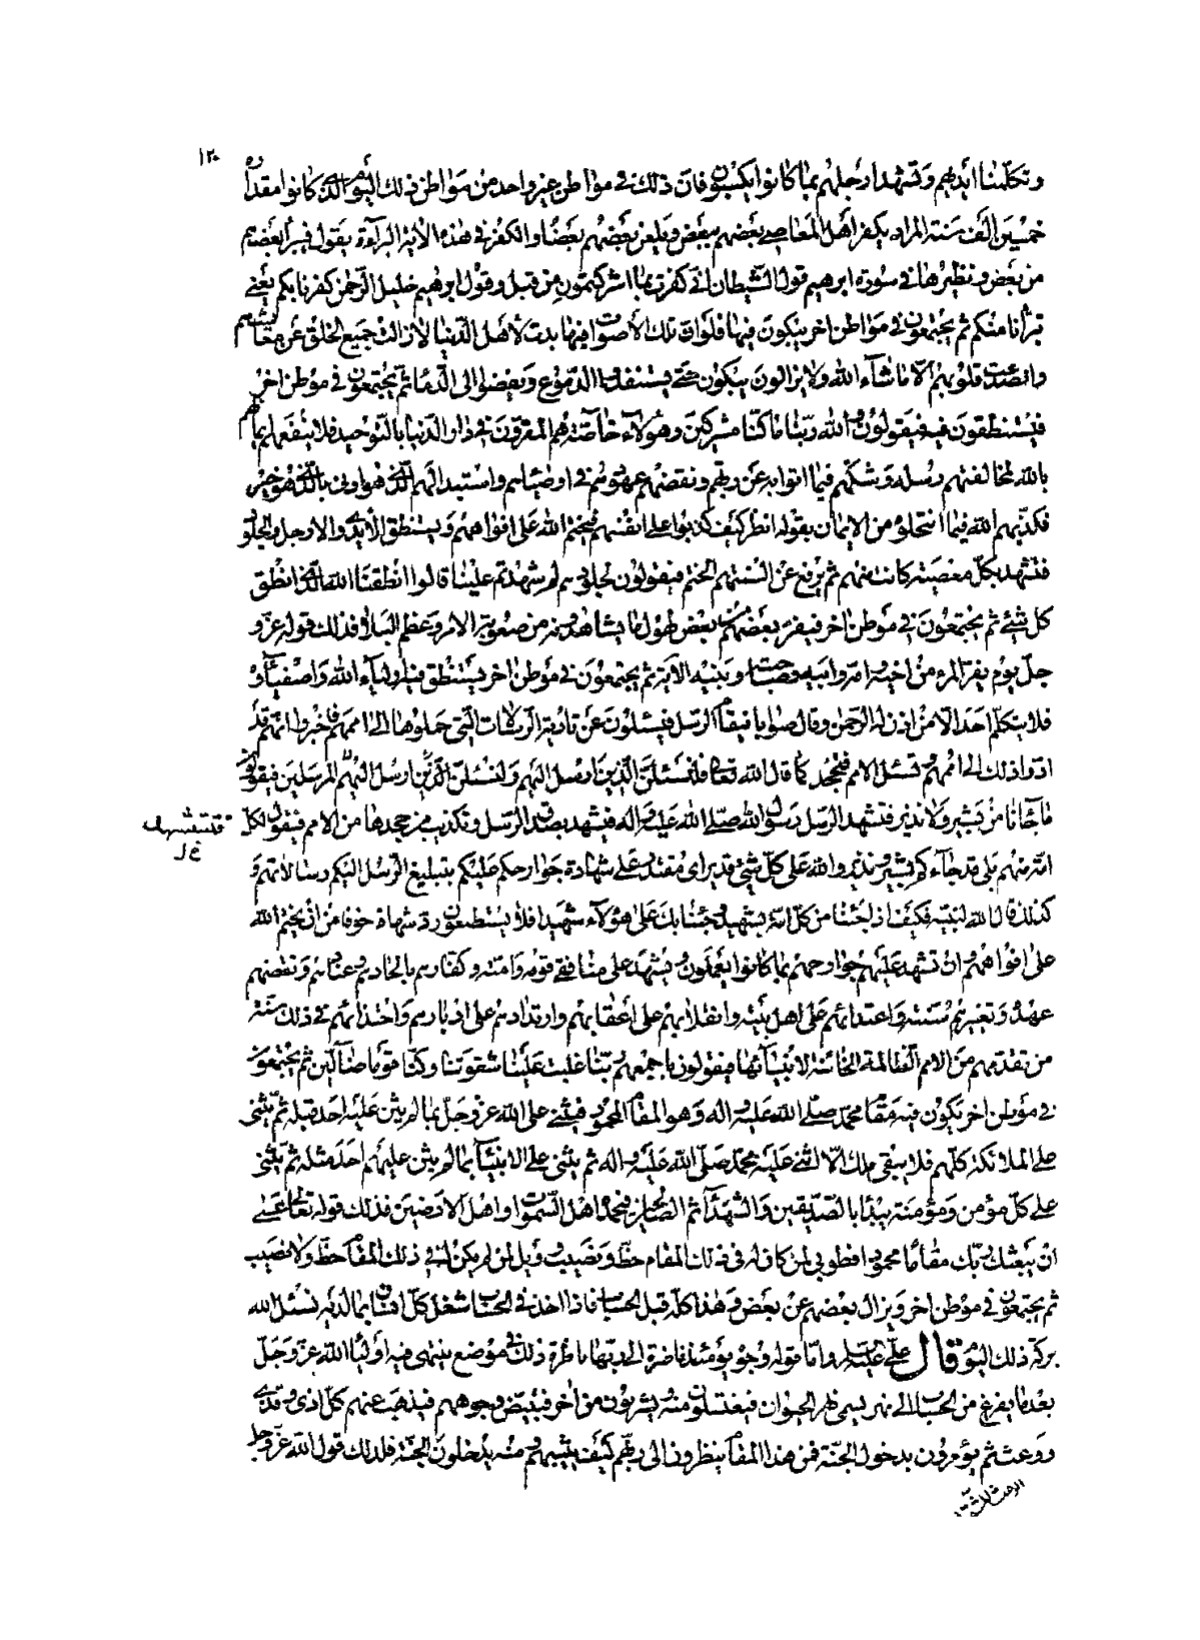 ١٢٠
وتكلمنا ايديهم وتشهد ارجلهم بما كانوا يكسبون فان ذلك في مواطن غير واحد من مواطن ذلك اليوم الذي كان مقداره
خمسين الف سنة المراد يكفر اهل المعاصي بعضهم ببعض ويلعن بعضهم بعضا والكفر في هذه الاية البراءة يقول فيبرأ بعضهم
من بعض ونظيرها في سورة ابرهيم قول الشيطان اني كفرت بما اشركتمون من قبل وقول ابرهيم خليل الرحمن كفرنا بكم يعني
تبرأنا منكم ثم يجتمعون في مواطن اخر يبكون فيها فلو ان تلك الاصوات فيها بدت لاهل الدنيا لازالت جميع الخلق عن معايشهم
وانصدعت قلوبهم الا ما شاء الله ولا يزالون يبكون حتى يستنفدوا الدموع ويفضوا الى الدماء ثم يجتمعون في موطن اخر
فيستنطقون فيه فيقولون والله ربنا ما كنا مشركين وهؤلاء خاصة هم المقرون في دار الدنيا بالتوحيد فلا ينفعهم ايمانهم
بالله لمخالفتهم رسله وشكهم فيما اتوا به عن ربهم ونقضهم عهودهم في اوصيائهم واستبدالهم الذي هو ادنى بالذي هو خير
فكذبهم الله فيما انتحلوه من الايمان بقوله انظر كيف كذبوا على انفسهم فيختم الله على افواههم ويستنطق الايدي والارجل والجلود
فتشهد بكل معصية كانت منهم ثم يرفع عن السنتهم الختم فيقولون لجلودهم لم شهدتم علينا قالوا انطقنا الله الذي انطق
كل شيء ثم يجتمعون في موطن اخر فيفر بعضهم من بعض لهول ما يشاهدونه من صعوبة الامر وعظم البلاء فذلك قوله عز و
جل يوم يفر المرء من اخيه وامه وابيه وصاحبته وبنيه الاية ثم يجتمعون في موطن اخر يستنطق فيه اولياء الله واصفياؤه
فلا يتكلم احد الا من اذن له الرحمن وقال صوابا فيقام الرسل فيسئلون عن تادية الرسالات التي حملوها الى اممهم فاخبروا انهم قد
ادوا ذلك الى اممهم وتسئل الامم فتجحد كما قال الله تعالى فلنسئلن الذين ارسل اليهم ولنسئلن المرسلين فيقولون
ما جاءنا من بشير ولا نذير فتشهد الرسل رسول الله صلى الله عليه واله فيشهد بصدق الرسل وتكذيب من جحدها من الامم فيقول لكل
فتستشهد
خ ل
امة منهم بلى قد جاءكم بشير ونذير والله على كل شيء قدير اي مقتدر على شهادة جوارحكم عليكم بتبليغ الرسل اليكم رسالاتهم و
كذلك قال الله لنبيه فكيف اذا جئنا من كل امة بشهيد وجئنا بك على هؤلاء شهيدا فلا يستطيعون رد شهادته خوفا من ان يختم الله
على افواههم وان تشهد عليهم جوارحهم بما كانوا يعملون ويشهد على منافقي قومه وامته وكفارهم بالحادهم وعنادهم ونقضهم
عهده وتغييرهم سنته واعتدائهم على اهل بيته وانقلابهم على اعقابهم وارتدادهم على ادبارهم واحتذائهم في ذلك سنة
من تقدمهم من الامم الظالمة الخائنة لانبيائها فيقولون باجمعهم ربنا غلبت علينا شقوتنا وكنا قوما ضالين ثم يجتمعون
في موطن اخر يكون فيه مقام محمد صلى الله عليه واله وهو المقام المحمود فيثني على الله عز وجل بما لم يثن عليه احد قبله ثم يثني
على الملائكة كلهم فلا يبقى ملك الا اثنى عليه محمد صلى الله عليه واله ثم يثني على الانبياء بما لم يثن عليهم احد مثله ثم يثني
على كل مؤمن ومؤمنة يبدأ بالصديقين والشهداء ثم الصالحين فيحمده اهل السموات واهل الارضين فذلك قوله تعالى عسى
ان يبعثك ربك مقاما محمودا فطوبى لمن كان له في ذلك المقام حظ ونصيب وويل لمن لم يكن له في ذلك المقام حظ ولا نصيب
ثم يجتمعون في موطن اخر ويزال بعضهم عن بعض وهذا كله قبل الحساب فاذا اخذ في الحساب شغل كل انسان بما لديه نسئل الله
بركة ذلك اليوم قال علي عليه السلام واما قوله وجوه يومئذ ناضرة الى ربها ناظرة ذلك في موضع ينتهي فيه اولياء الله عز وجل
بعد ما يفرغ من الحساب الى نهر يسمى نهر الحيوان فيغتسلون منه ويشربون من اخر فتبيض وجوههم فيذهب عنهم كل اذى وقذى
ووعث ثم يؤمرون بدخول الجنة فمن هذا المقام ينظرون الى ربهم كيف يثيبهم ومنه يدخلون الجنة فذلك قول الله عز وجل